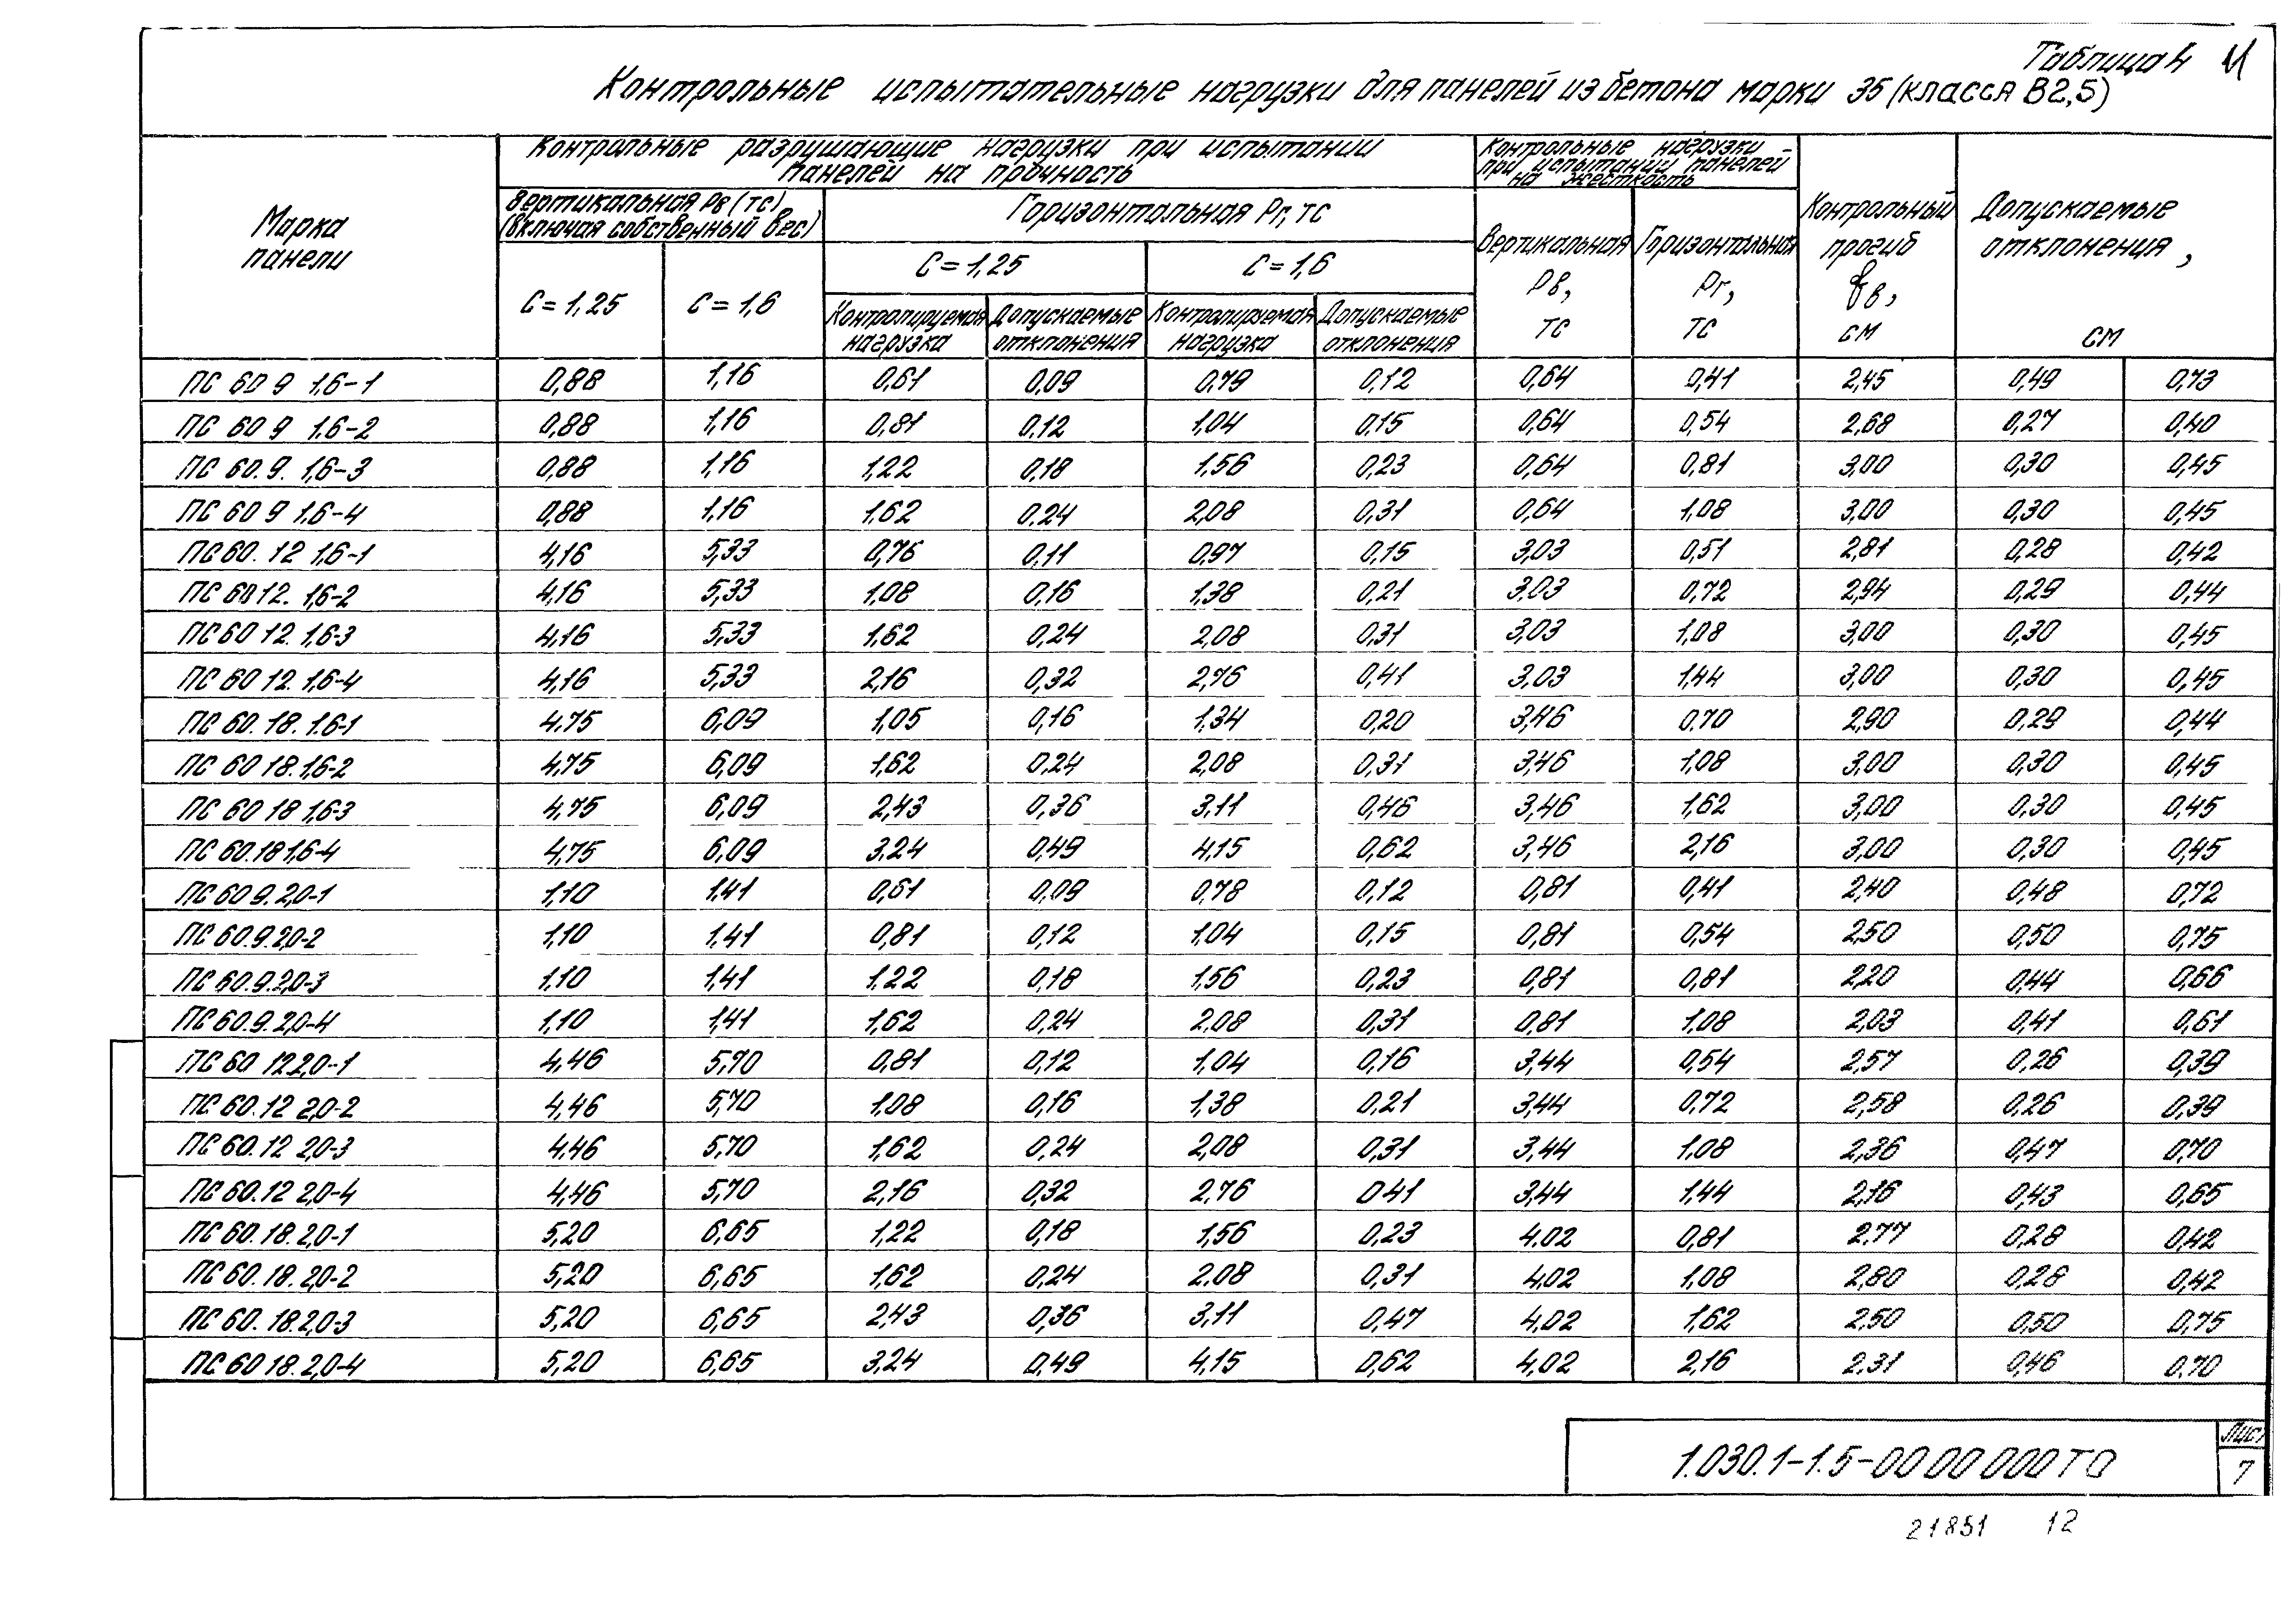 Таблица 4 11
Контрольные испытательные нагрузки для панелей из бетона марки 35 (класса В2,5)
Марка панели
Контрольные разрушающие нагрузки при испытании панелей на прочность
Вертикальная Рв (тс) (включая собственный вес)
С = 1,25
С = 1,6
Горизонтальная Рг, тс
С = 1,25
Контролируемая нагрузка
Допускаемые отклонения
С = 1,6
Контролируемая нагрузка
Допускаемые отклонения
Контрольные нагрузки при испытании панелей на жесткость
Вертикальная Рв, тс
Горизонтальная Рг, тс
Контрольный прогиб fв, см
Допускаемые отклонения, см
ПС 60 9 1,6-1 0,88 1,16 0,61 0,09 0,79 0,12 0,64 0,41 2,45 0,49 0,73
ПС 60 9 1.6-2 0,88 1,16 0,81 0,12 1,04 0,15 0,64 0,54 2,68 0,27 0,40
ПС 60.9. 1,6-3 0,88 1,16 1,22 0,18 1,56 0,23 0,64 0,81 3,00 0,30 0,45
ПС 60 9 1,6-4 0,88 1,16 1,62 0,24 2,08 0,31 0,64 1,08 3,00 0,30 0,45
ПС 60. 12 1,6-1 4,16 5,33 0,76 0,11 0,97 0,15 3,03 0,51 2,81 0,28 0,42
ПС 60 12. 1,6-2 4,16 5,33 1,08 0,16 1,38 0,21 3,03 0,72 2,94 0,29 0,44
ПС 60 12. 1,6-3 4,16 5,33 1,62 0,24 2,08 0,31 3,03 1,08 3,00 0,30 0,45
ПС 60 12. 1,6-4 4,16 5,33 2,16 0,32 2,76 0,41 3,03 1,44 3,00 0,30 0,45
ПС 60. 18. 1.6-1 4,75 6,09 1,05 0,16 1,34 0,20 3,46 0,70 2,90 0,29 0,44
ПС 60 18. 1,6-2 4,75 6,09 1,62 0,24 2,08 0,31 3,46 1,08 3,00 0,30 0,45
ПС 60 18 1,6-3 4,75 6,09 2,43 0,36 3,11 0,46 3,46 1,62 3,00 0,30 0,45
ПС 60.18 1,6-4 4,75 6,09 3,24 0,49 4,15 0,62 3,46 2,16 3,00 0,30 0,45
ПС 60 9. 2,0-1 1,10 1,41 0,61 0,09 0,78 0,12 0,81 0,41 2,40 0,48 0,72
ПС 60.9. 2,0-2 1,10 1,41 0,81 0,12 1,04 0,15 0,81 0,54 2,50 0,50 0,75
ПС 60.9. 2,0-3 1,10 1,41 1,22 0,18 1,56 0,23 0,81 0,81 2,20 0,44 0,66
ПС 60.9. 2,0-4 1,10 1,41 1,62 0,24 2,08 0,31 0,81 1,08 2,03 0,41 0,61
ПС 60 12 2,0-1 4,46 5,70 0,81 0,12 1,04 0,16 3,44 0,54 2,57 0,26 0,39
ПС 60.12 2,0-2 4,46 5,70 1,08 0,16 1,38 0,21 3,44 0,72 2,58 0,26 0,39
ПС 60.12 2,0-3 4,46 5,70 1,62 0,24 2,08 0,31 3,44 1,08 2,36 0,47 0,70
ПС 60.12 2,0-4 4,46 5,70 2,16 0,32 2,76 0 41 3,44 1,44 2,16 0,43 0,65
ПС 60. 18. 2,0-1 5,20 6,65 1,22 0,18 1,56 0,23 4,02 0,81 2,77 0,28 0,42
ПС 60. 18. 2,0-2 5,20 6,65 1,62 0,24 2,08 0,31 4,02 1,08 2,80 0,28 0,42
ПС 60. 18. 2,0-3 5,20 6,65 2,43 0,36 3,11 0,47 4,02 1,62 2,50 0,50 0,75
ПС 60 18. 2,0-4 5,20 6,65 3,24 0,49 4,15 0,62 4,02 2,16 2,31 0,46 0,70
1.030.1-1.5-00 00 000 ТО
Лист
7
21851 12